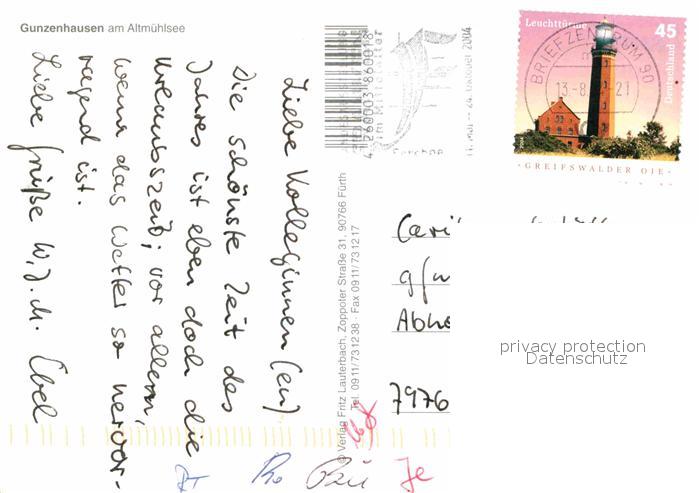 Gunzenhausen am Altmühlsee
Liebe Kolleginnen (en)
Die schönste Zeit des
Jahres ist eben doch die
Urlaubszeit; vor allem,
wenn das Wetter so hervor-
ragend ist.
Liebe Grüße W. J. M. Ebel
4 260003 860018
© Verlag Fritz Lauterbach, Zoppoter Straße 31, 90766 Fürth
Tel. 0911/731238 · Fax 0911/731217
24. Oktober 2004
Leuchttürme
45
Deutschland
BRIEFZENTRUM 90
13.-8. 21
·GREIFSWALDER OIE·
Cari
g/w
7976
privacy protection
Datenschutz